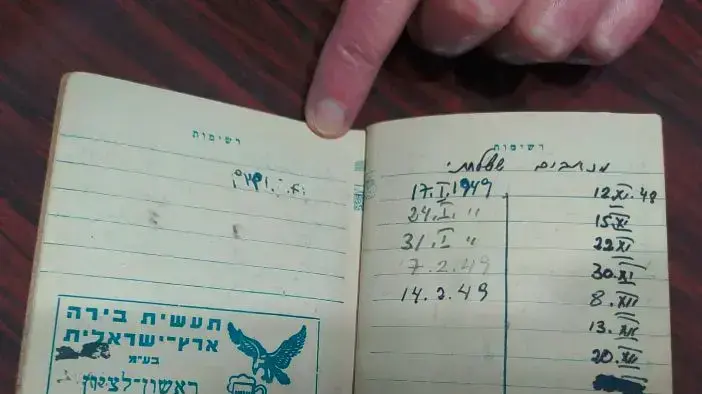 רשימות
מכתבים ששלחתי
12.XI.48
15.XI
22.XI
30.XI
8.XII
13.XII
20.XII
17.I.1949
24.I. "
31.I "
7.2.49
14.2.49
רשימות
תעשית בירה
ארץ-ישראלית
בע"מ
ראשון-לציון